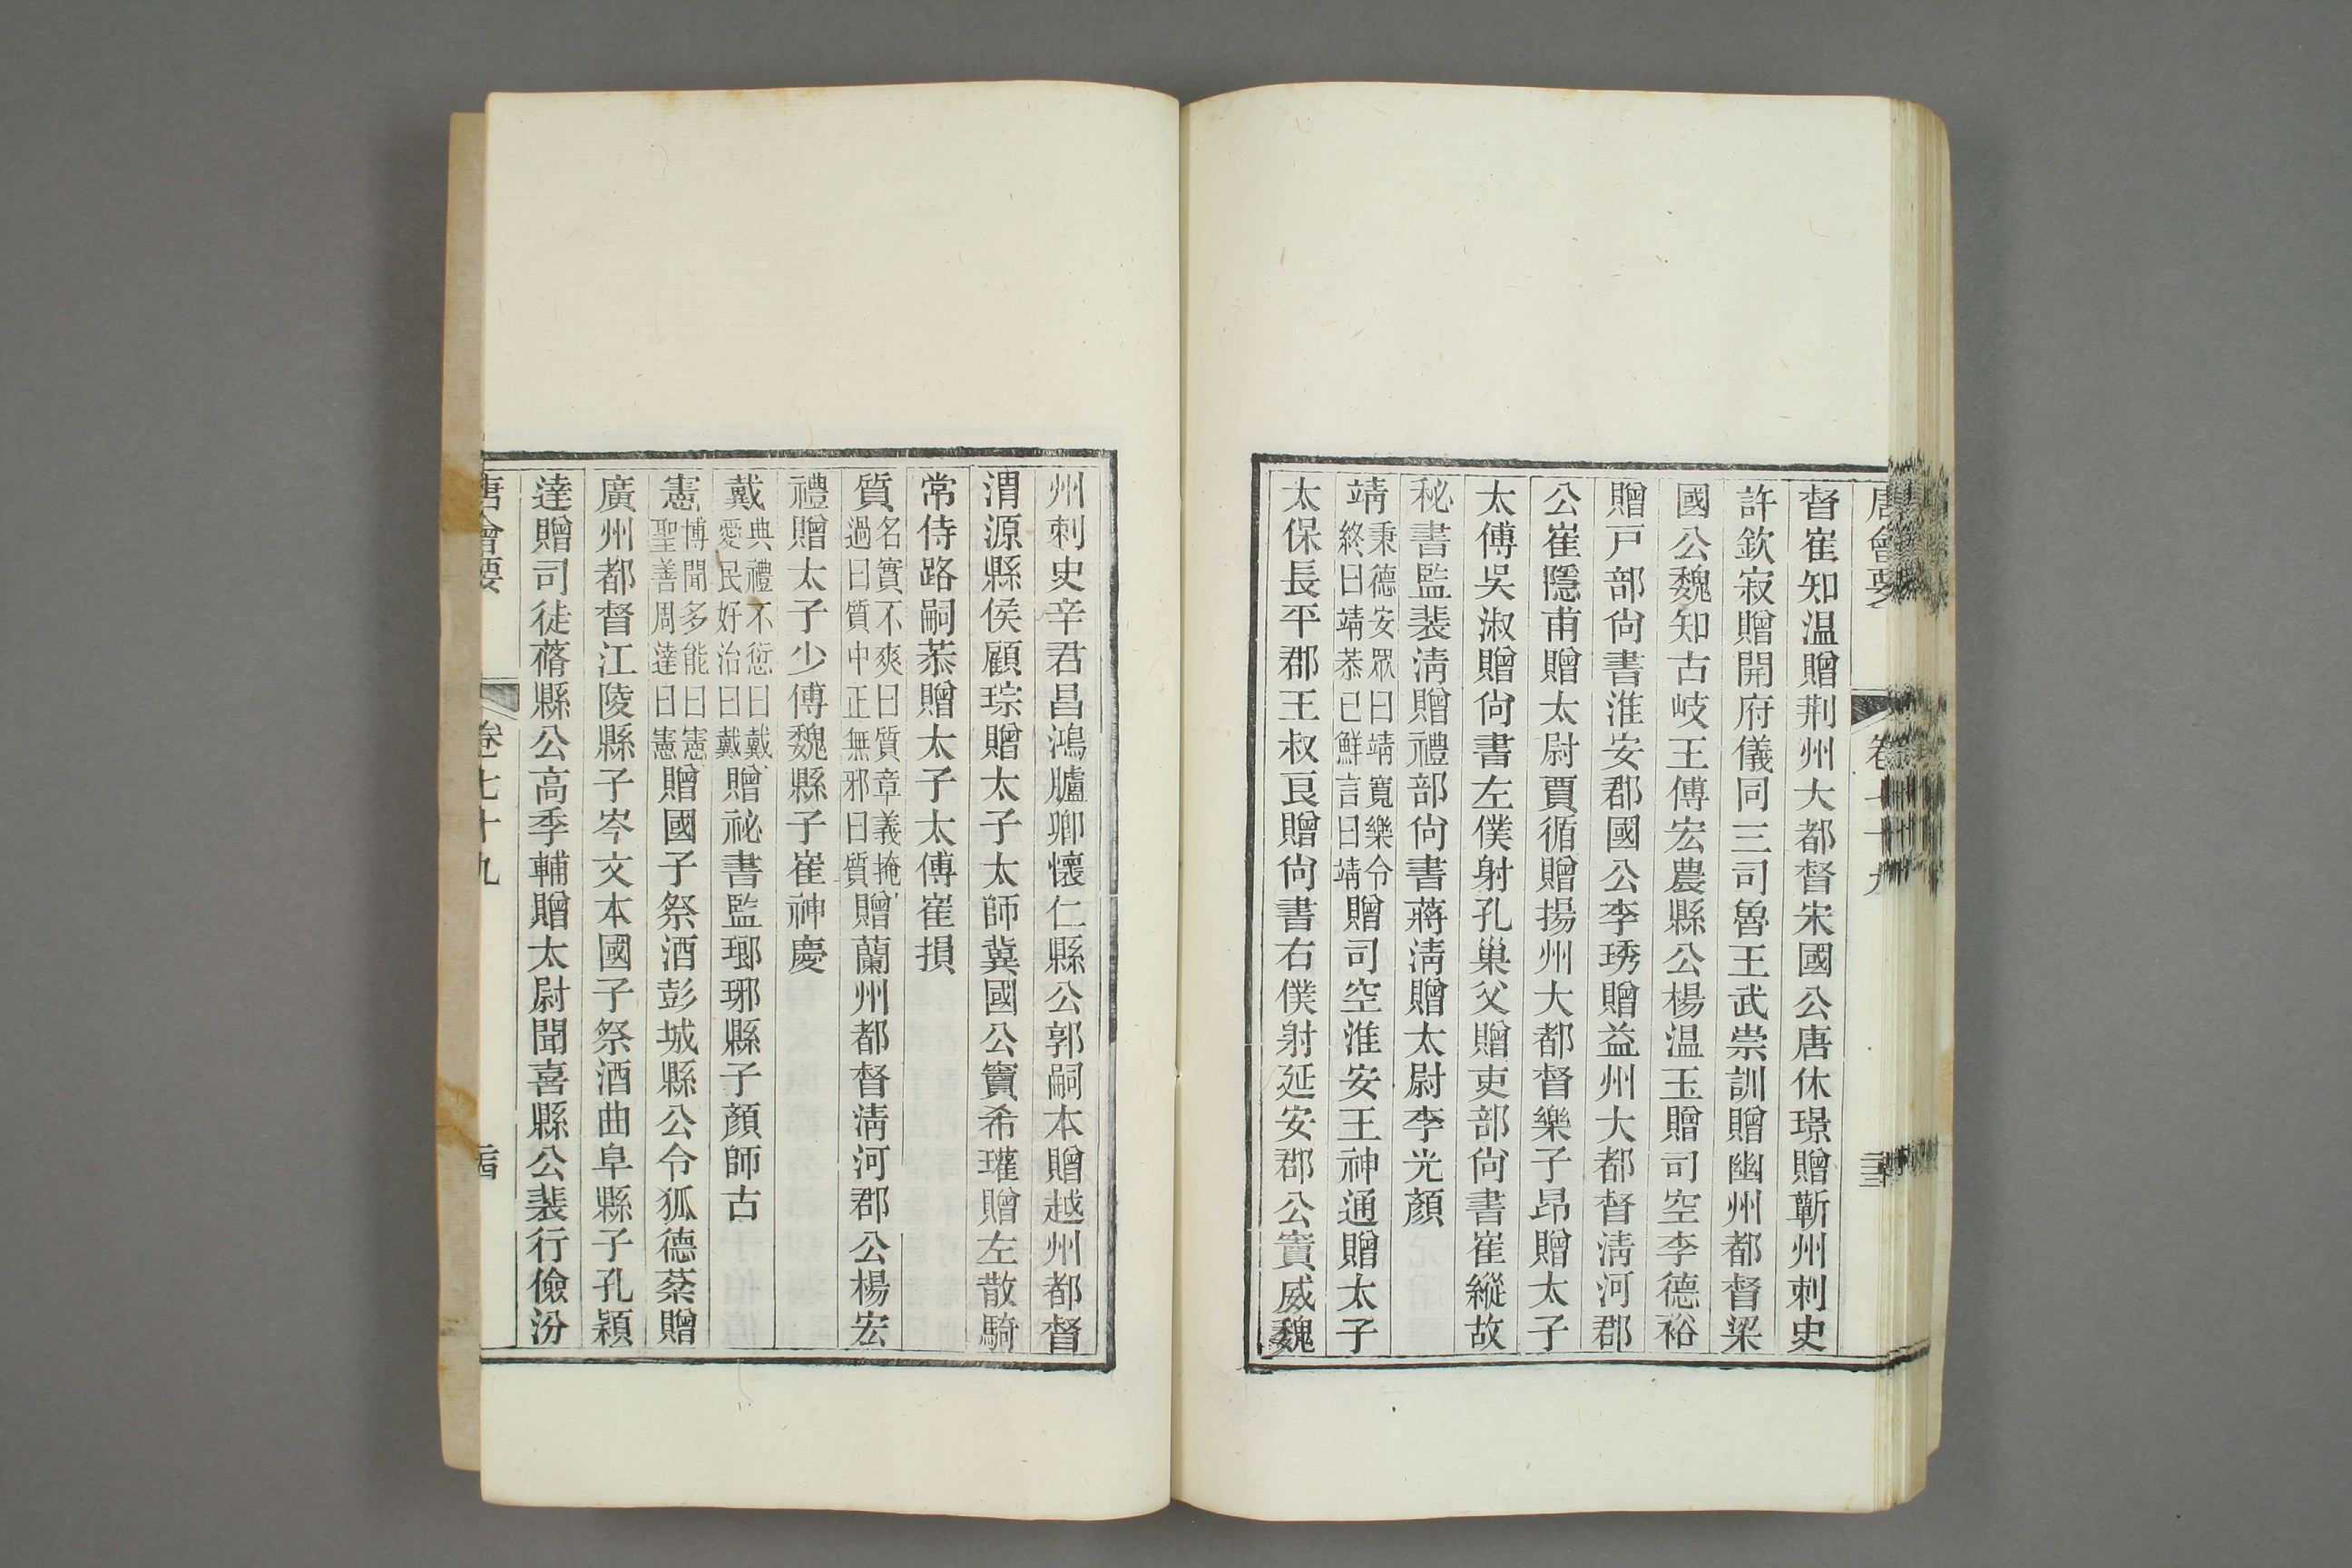 唐會要 卷七十九
督崔知温贈荆州大都督宋國公唐休璟贈蘄州刺史
許欽寂贈開府儀同三司魯王武崇訓贈幽州都督梁
國公魏知古岐王傅宏農縣公楊温玉贈司空李德裕
贈戸部尙書淮安郡國公李琇贈益州大都督淸河郡
公崔隱甫贈太尉賈循贈揚州大都督樂子昂贈太子
太傅吳淑贈尙書左僕射孔巢父贈吏部尙書崔縱故
秘書監裴淸贈禮部尙書蔣淸贈太尉李光顏
靖秉德安眾曰靖寬樂令終曰靖恭已鮮言曰靖贈司空淮安王神通贈太子
太保長平郡王叔良贈尙書右僕射延安郡公竇威魏
州刺史辛君昌鴻臚卿懷仁縣公郭嗣本贈越州都督
渭源縣侯顧琮贈太子太師冀國公竇希瓘贈左散騎
常侍路嗣恭贈太子太傅崔損
質名實不爽曰質章義掩過曰質中正無邪曰質贈蘭州都督淸河郡公楊宏
禮贈太子少傅魏縣子崔神慶
戴典禮不愆曰戴愛民好治曰戴贈祕書監瑯琊縣子顏師古
憲博聞多能曰憲聖善周達曰憲贈國子祭酒彭城縣公令狐德棻贈
廣州都督江陵縣子岑文本國子祭酒曲阜縣子孔穎
達贈司徒蓨縣公高季輔贈太尉聞喜縣公裴行儉汾
唐會要 卷七十九